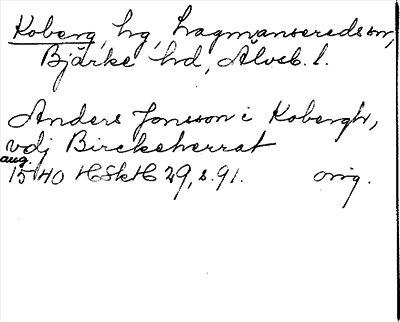 Koberg, hg, Lagmanseredssn,
Bjärke hd, Älvsb. l.
Anders Jonsson i Kobergh,
vdj Birckeherrat
aug.
1540 HSkH 29, s. 91. orig.